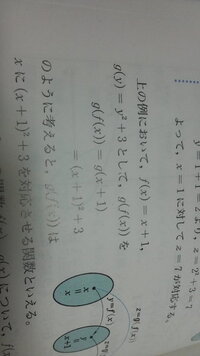 y = 1 + 1 = 2 より, z = 2² + 3 = 7
よって, x = 1 に対して z = 7 が対応する。
上の例において, f(x) = x + 1,
g(y) = y² + 3 として, g(f(x)) を
g(f(x)) = g(x + 1)
= (x + 1)² + 3
のように考えると, g(f(x)) は
x に (x + 1)² + 3 を対応させる関数といえる。
z = g(f(x))
y = f(x)
x
=
x
x+1
=